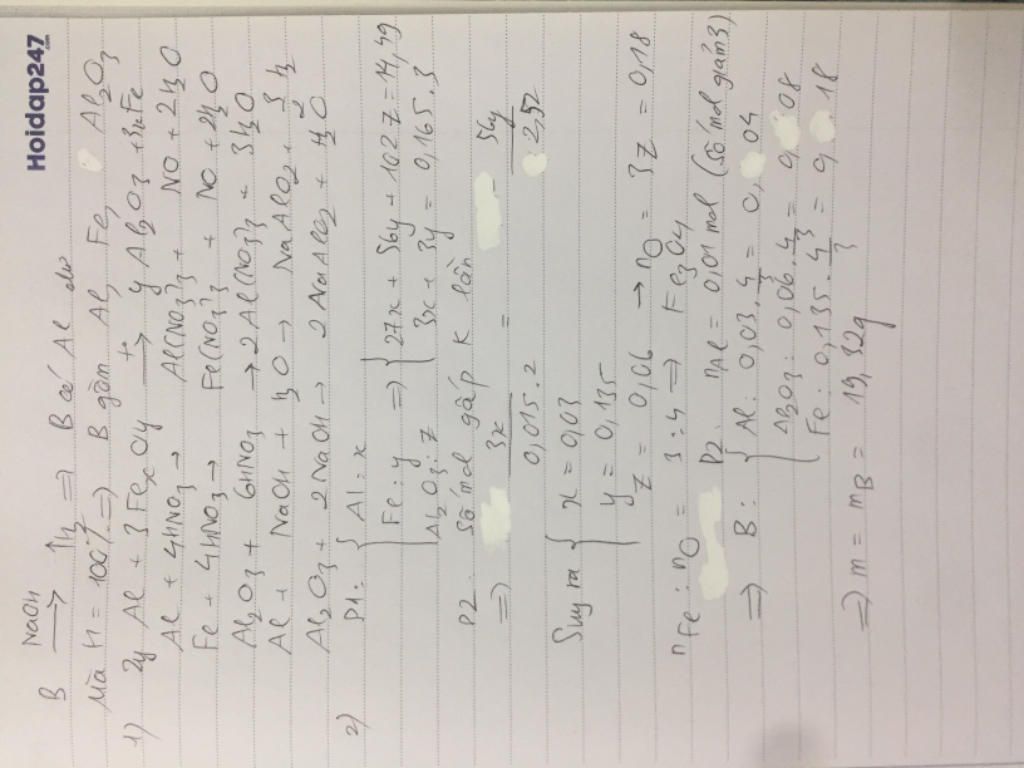 Hoidap247.com
B NaOH → ↑H2 ⇒ B có Al dư
Mà H = 100% ⇒ B gồm Al, Fe, Al2O3
1) 2y Al + 3 FexOy t° → y Al2O3 + 3xFe
Al + 4HNO3 → Al(NO3)3 + NO + 2H2O
Fe + 4HNO3 → Fe(NO3)3 + NO + 2H2O
Al2O3 + 6HNO3 → 2Al(NO3)3 + 3H2O
Al + NaOH + H2O → NaAlO2 + 3/2 H2
Al2O3 + 2NaOH → 2NaAlO2 + H2O
2) P1: { Al: x
Fe: y ⇒ { 27x + 56y + 102z = 14,49
Al2O3: z 3x + 3y = 0,165.3
P2: Số mol gấp k lần
⇒ 3x / 0,015.2 = 56y / 2,52
Suy ra { x = 0,03
y = 0,135
z = 0,06 → nO = 3z = 0,18
nFe : nO = 3:4 ⇒ Fe3O4
P2: nAl = 0,01 mol (số mol giảm 3)
⇒ B: { Al: 0,03.4/3 = 0,04
Al2O3: 0,06.4/3 = 0,08
Fe: 0,135.4/3 = 0,18
⇒ m = mB = 19,32g